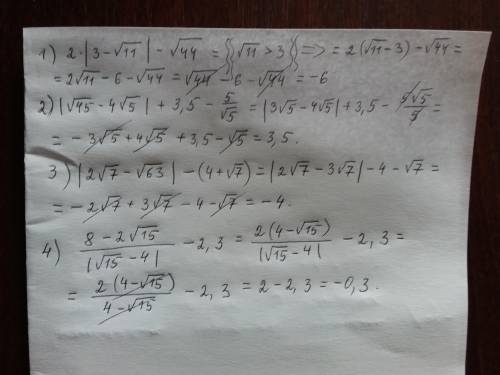 1) 2·|3 - √11| - √44 = {√11 > 3} => = 2(√11 - 3) - √44 =
= 2√11 - 6 - √44 = √44 - 6 - √44 = -6
2) |√45 - 4√5| + 3,5 - 5/√5 = |3√5 - 4√5| + 3,5 - 5√5/5 =
= - 3√5 + 4√5 + 3,5 - √5 = 3,5.
3) |2√7 - √63| - (4 + √7) = |2√7 - 3√7| - 4 - √7 =
= - 2√7 + 3√7 - 4 - √7 = -4.
4) (8 - 2√15)/|√15 - 4| - 2,3 = 2(4 - √15)/|√15 - 4| - 2,3 =
= 2(4 - √15)/(4 - √15) - 2,3 = 2 - 2,3 = -0,3.